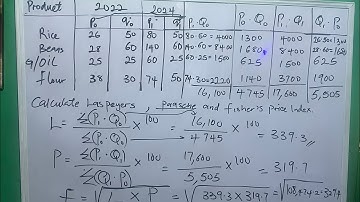 Product 2022 2024 P₁·Q₀ P₀·Q₀ P₁·Q₁ Q₁·P₀
P₀ q₀ P₁ q₁
Rice 26 50 80 50 80·50=4000 1300 4000 26·50=1300
Beans 28 60 140 60 140·60=8400 1680 8400 28·60=1680
G/OIL 25 25 60 25 60·25=1500 625 1500 625
flour 38 30 74 50 74·30=2220 1140 3700 1900
16,100 4745 17,600 5,505
Calculate Laspeyers, Paasche and fisher's price Index.
L = Σ(P₁·Q₀)/Σ(P₀·Q₀) × 100 = 16,100/4745 × 100 = 339.3
P = Σ(P₁·Q₁)/Σ(Q₁·P₀) × 100 = 17,600/5,505 × 100 = 319.7
f = √L × P = √339.3 × 319.7 = √108,474.2